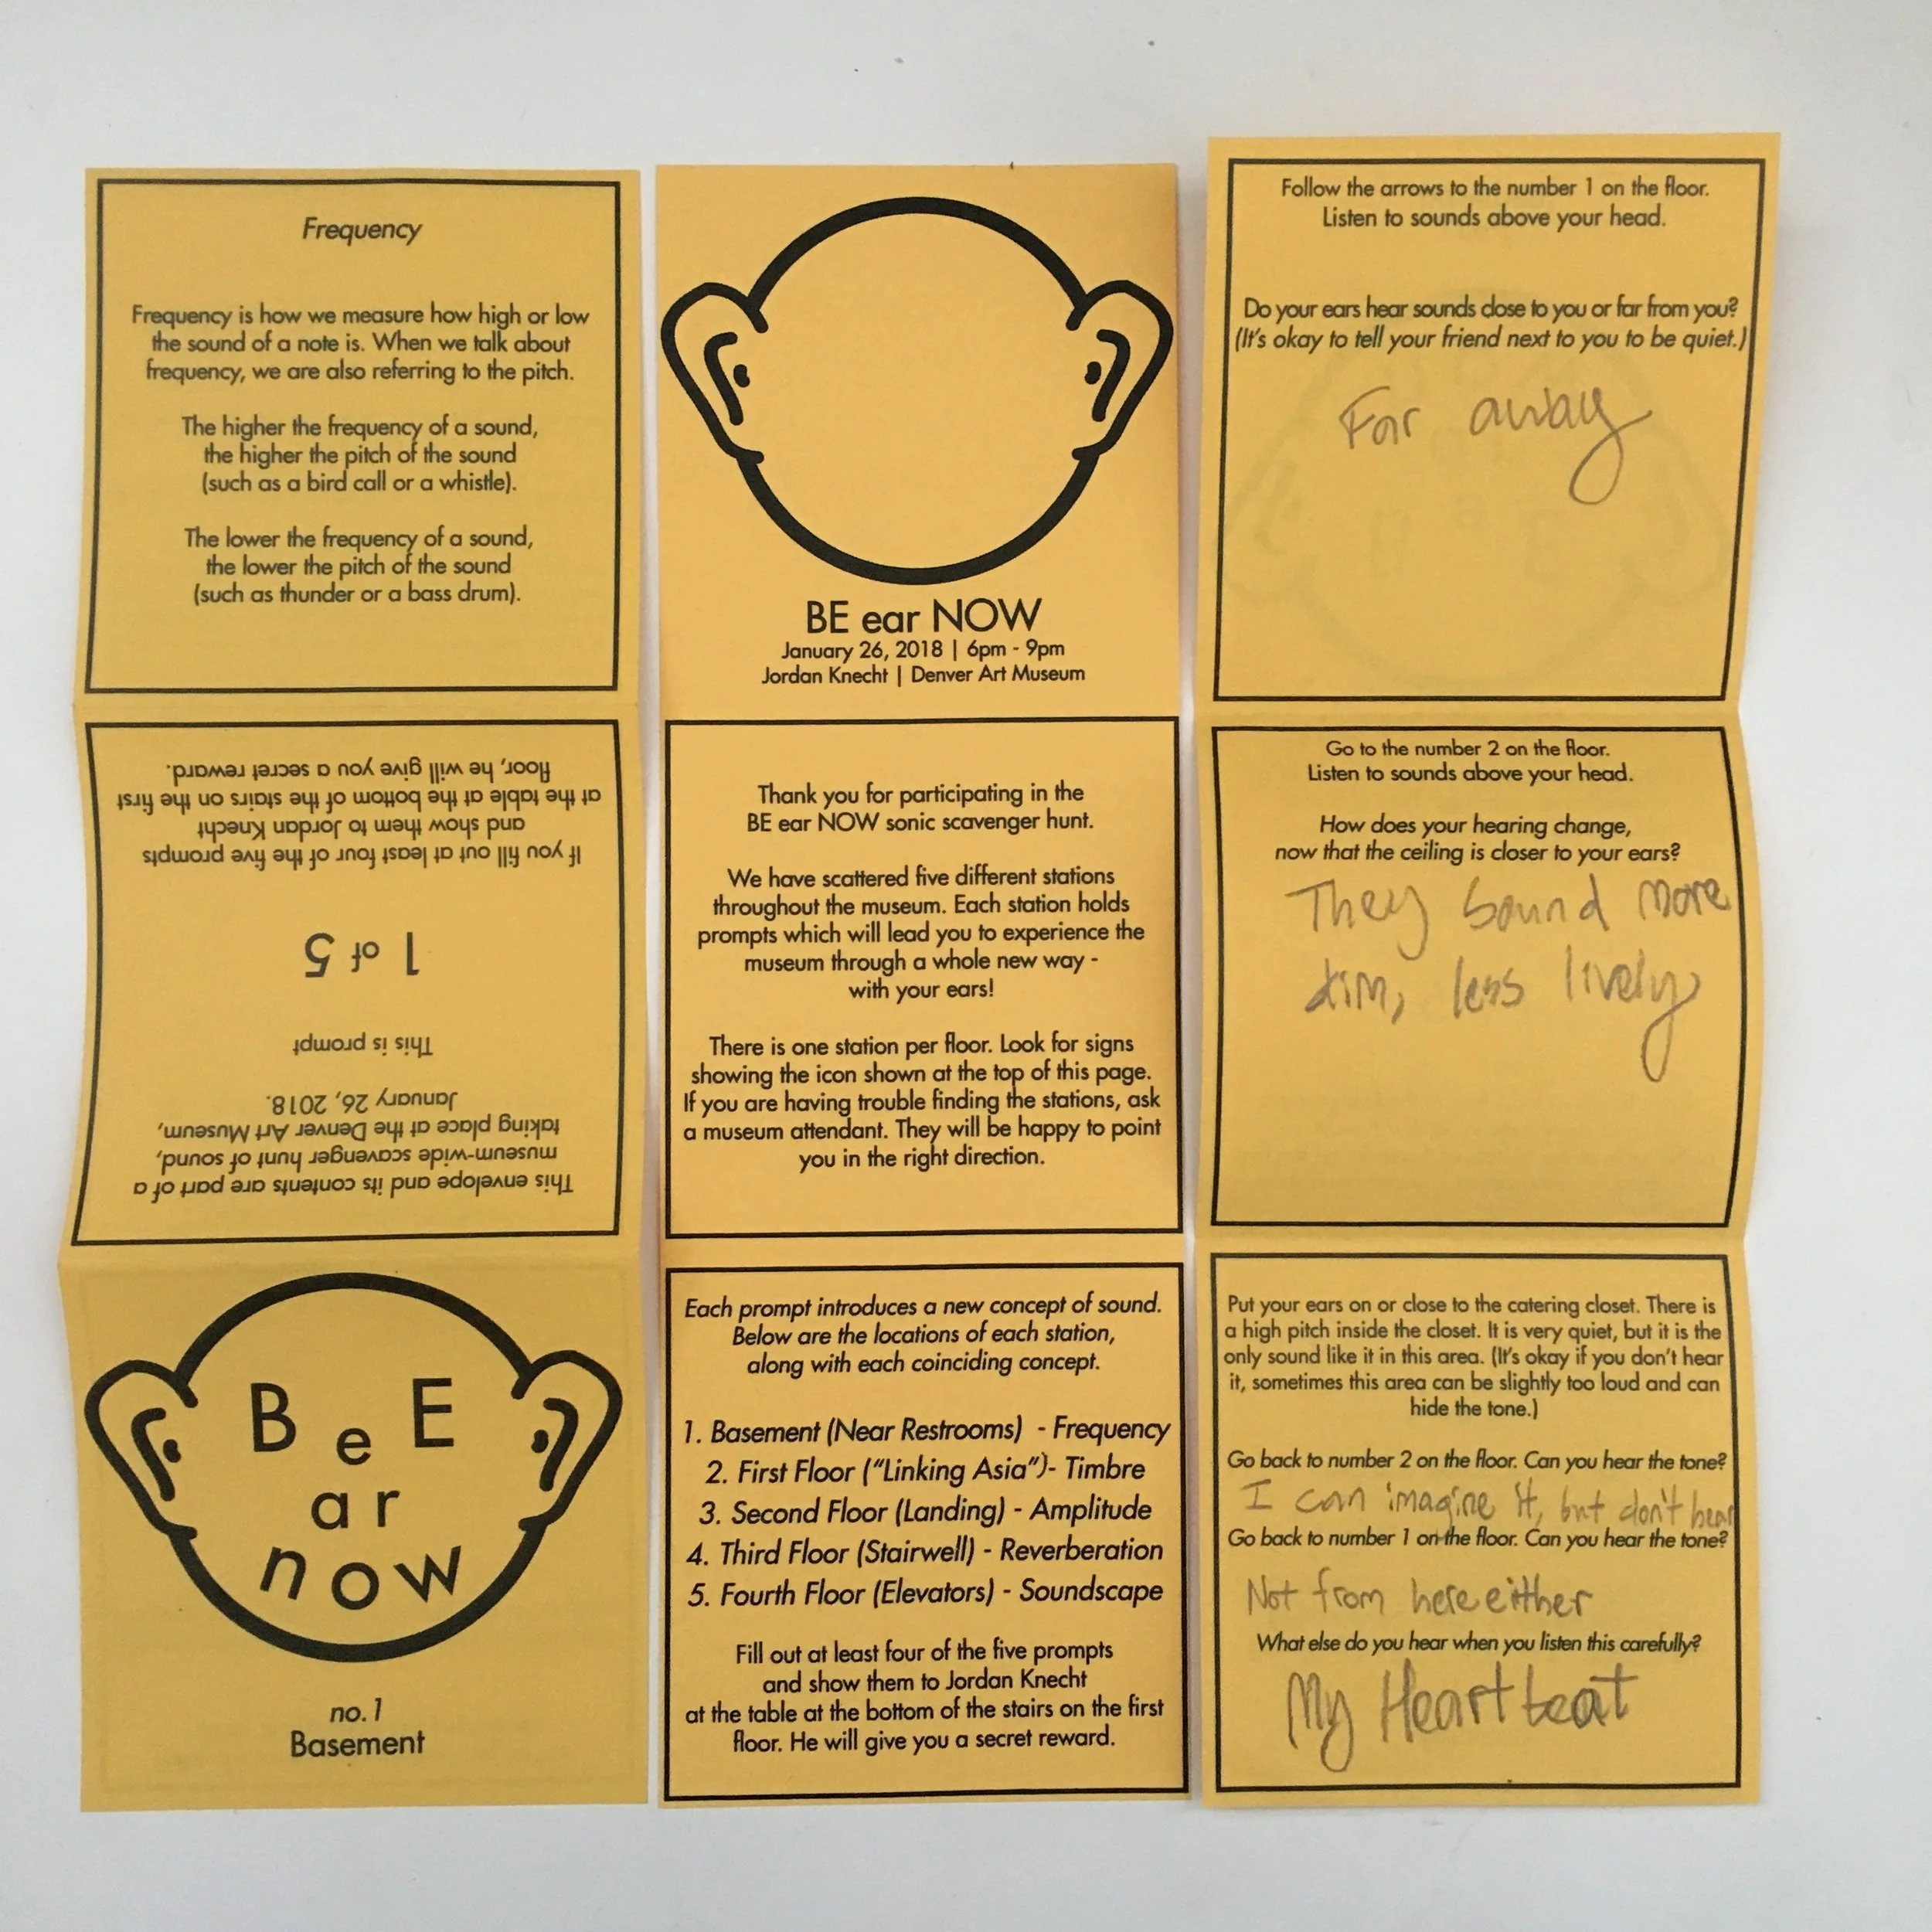 Frequency
Frequency is how we measure how high or low
the sound of a note is. When we talk about
frequency, we are also referring to the pitch.
The higher the frequency of a sound,
the higher the pitch of the sound
(such as a bird call or a whistle).
The lower the frequency of a sound,
the lower the pitch of the sound
(such as thunder or a bass drum).
This envelope and its contents are part of a
museum-wide scavenger hunt of sound,
taking place at the Denver Art Museum,
January 26, 2018.
This is prompt
1 of 5
If you fill out at least four of the five prompts
and show them to Jordan Knecht
at the table at the bottom of the stairs on the first
floor, he will give you a secret reward.
B e E
a r
n o w
no. 1
Basement
BE ear NOW
January 26, 2018 | 6pm - 9pm
Jordan Knecht | Denver Art Museum
Thank you for participating in the
BE ear NOW sonic scavenger hunt.
We have scattered five different stations
throughout the museum. Each station holds
prompts which will lead you to experience the
museum through a whole new way -
with your ears!
There is one station per floor. Look for signs
showing the icon shown at the top of this page.
If you are having trouble finding the stations, ask
a museum attendant. They will be happy to point
you in the right direction.
Each prompt introduces a new concept of sound.
Below are the locations of each station,
along with each coinciding concept.
1. Basement (Near Restrooms) - Frequency
2. First Floor ("Linking Asia")- Timbre
3. Second Floor (Landing) - Amplitude
4. Third Floor (Stairwell) - Reverberation
5. Fourth Floor (Elevators) - Soundscape
Fill out at least four of the five prompts
and show them to Jordan Knecht
at the table at the bottom of the stairs on the first
floor. He will give you a secret reward.
Follow the arrows to the number 1 on the floor.
Listen to sounds above your head.
Do your ears hear sounds close to you or far from you?
(It's okay to tell your friend next to you to be quiet.)
Far away
Go to the number 2 on the floor.
Listen to sounds above your head.
How does your hearing change,
now that the ceiling is closer to your ears?
They sound more
dim, less lively
Put your ears on or close to the catering closet. There is
a high pitch inside the closet. It is very quiet, but it is the
only sound like it in this area. (It's okay if you don't hear
it, sometimes this area can be slightly too loud and can
hide the tone.)
Go back to number 2 on the floor. Can you hear the tone?
I can imagine it, but don't hear
Go back to number 1 on the floor. Can you hear the tone?
Not from here either
What else do you hear when you listen this carefully?
My Heartbeat